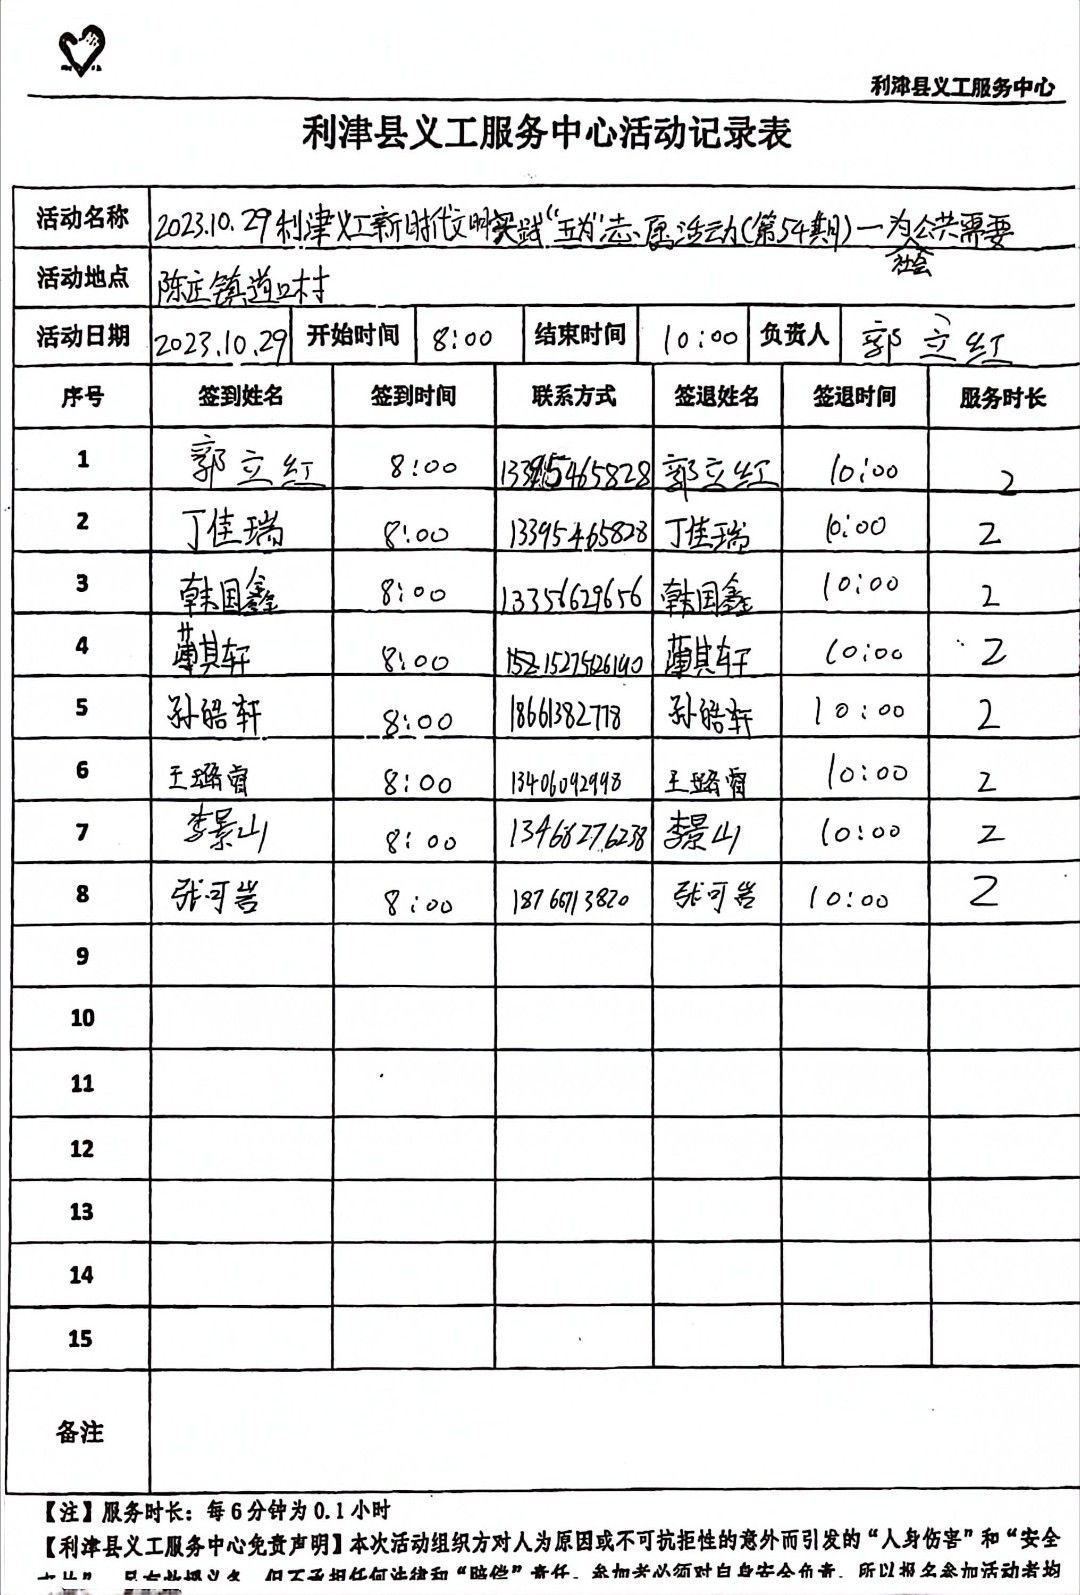 利津县义工服务中心
利津县义工服务中心活动记录表
活动名称 2023.10.29利津义工新时代文明实践“五为”志愿活动(第54期)一为社会公共需要
活动地点 陈庄镇道口村
活动日期 2023.10.29 开始时间 8:00 结束时间 10:00 负责人 郭立红
序号 签到姓名 签到时间 联系方式 签退姓名 签退时间 服务时长
1 郭立红 8:00 13395465828 郭立红 10:00 2
2 丁佳瑞 8:00 13395465828 丁佳瑞 10:00 2
3 韩国鑫 8:00 13356629656 韩国鑫 10:00 2
4 蔺其轩 8:00 10:00 2
5 孙皓轩 8:00 18661382778 孙皓轩 10:00 2
6 王璐睿 8:00 13406092998 王璐睿 10:00 2
7 李景山 8:00 13468276238 李景山 10:00 2
8 张可岩 8:00 18766713820 张可岩 10:00 2
9
10
11
12
13
14
15
备注
【注】服务时长：每6分钟为0.1小时
【利津县义工服务中心免责声明】本次活动组织方对人为原因或不可抗拒性的意外而引发的“人身伤害”和“安全
但不承担任何法律和“赔偿”责任。参加者必须对自身安全负责。所以报名参加活动者均